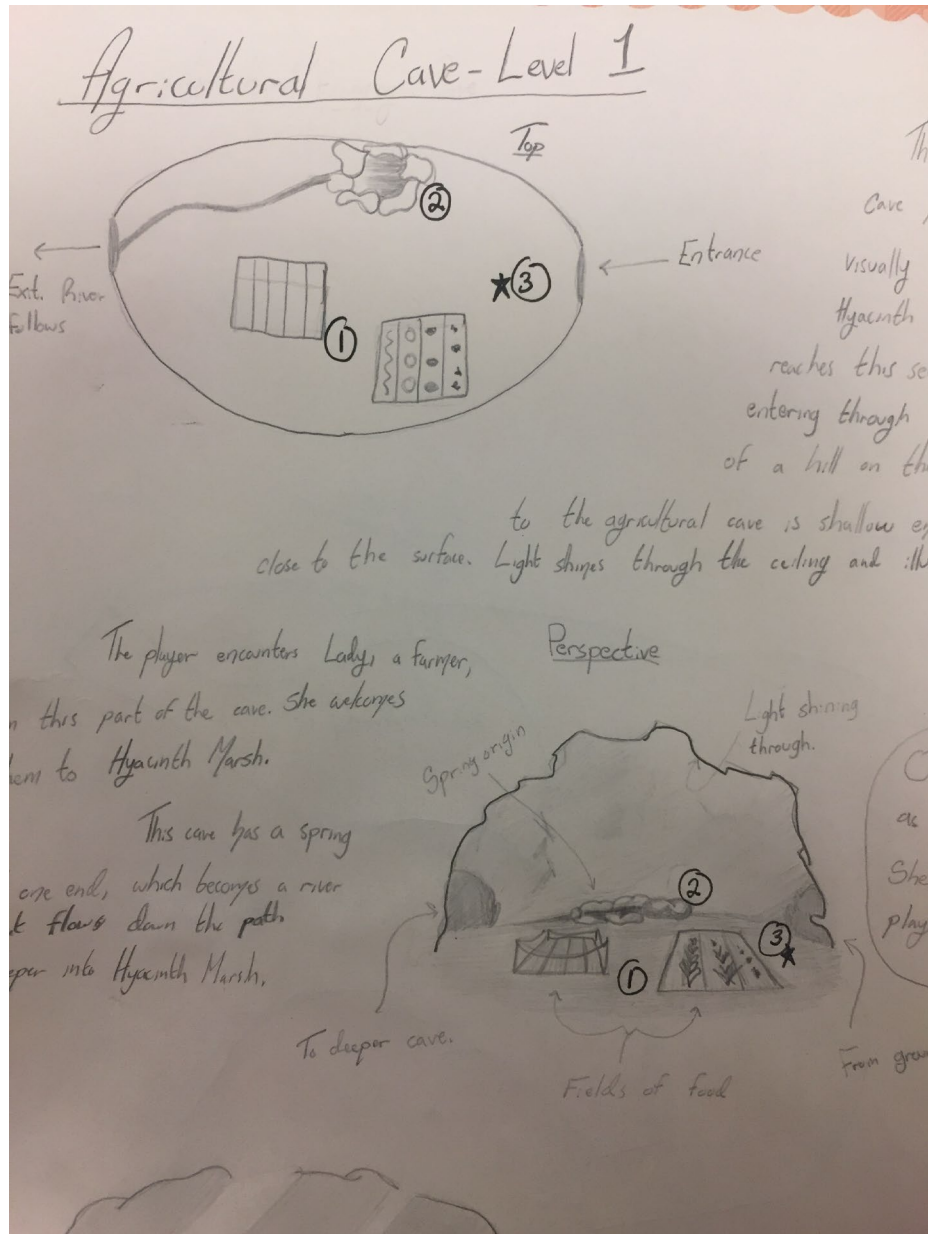 Agricultural Cave - Level 1
Top
②
③
①
Entrance
Exit. River
follows
Th
Cave
visually
Hyacinth
reaches this se
entering through
of a hill on th
to the agricultural cave is shallow e
close to the surface. Light shines through the ceiling and illu
The player encounters Lady, a farmer,
n this part of the cave. She welcomes
hem to Hyacinth Marsh.
This cave has a spring
one end, which becomes a river
t flows down the path
eper into Hyacinth Marsh.
Perspective
Spring origin
Light shining
through.
②
③
①
To deeper cave.
Fields of food
From grou
C
as
She
play